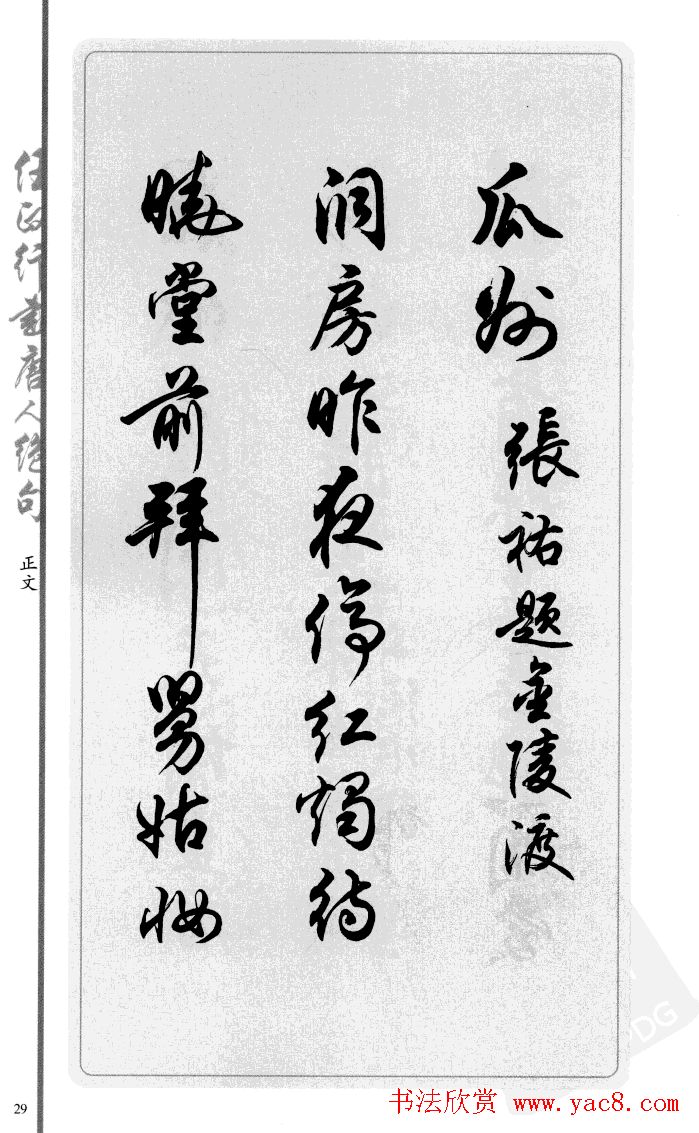 瓜州 張祜題金陵渡
洞房昨夜停紅燭待
曉堂前拜舅姑妝
任政行書唐人絕句
正文
29
书法欣赏 www.yac8.com